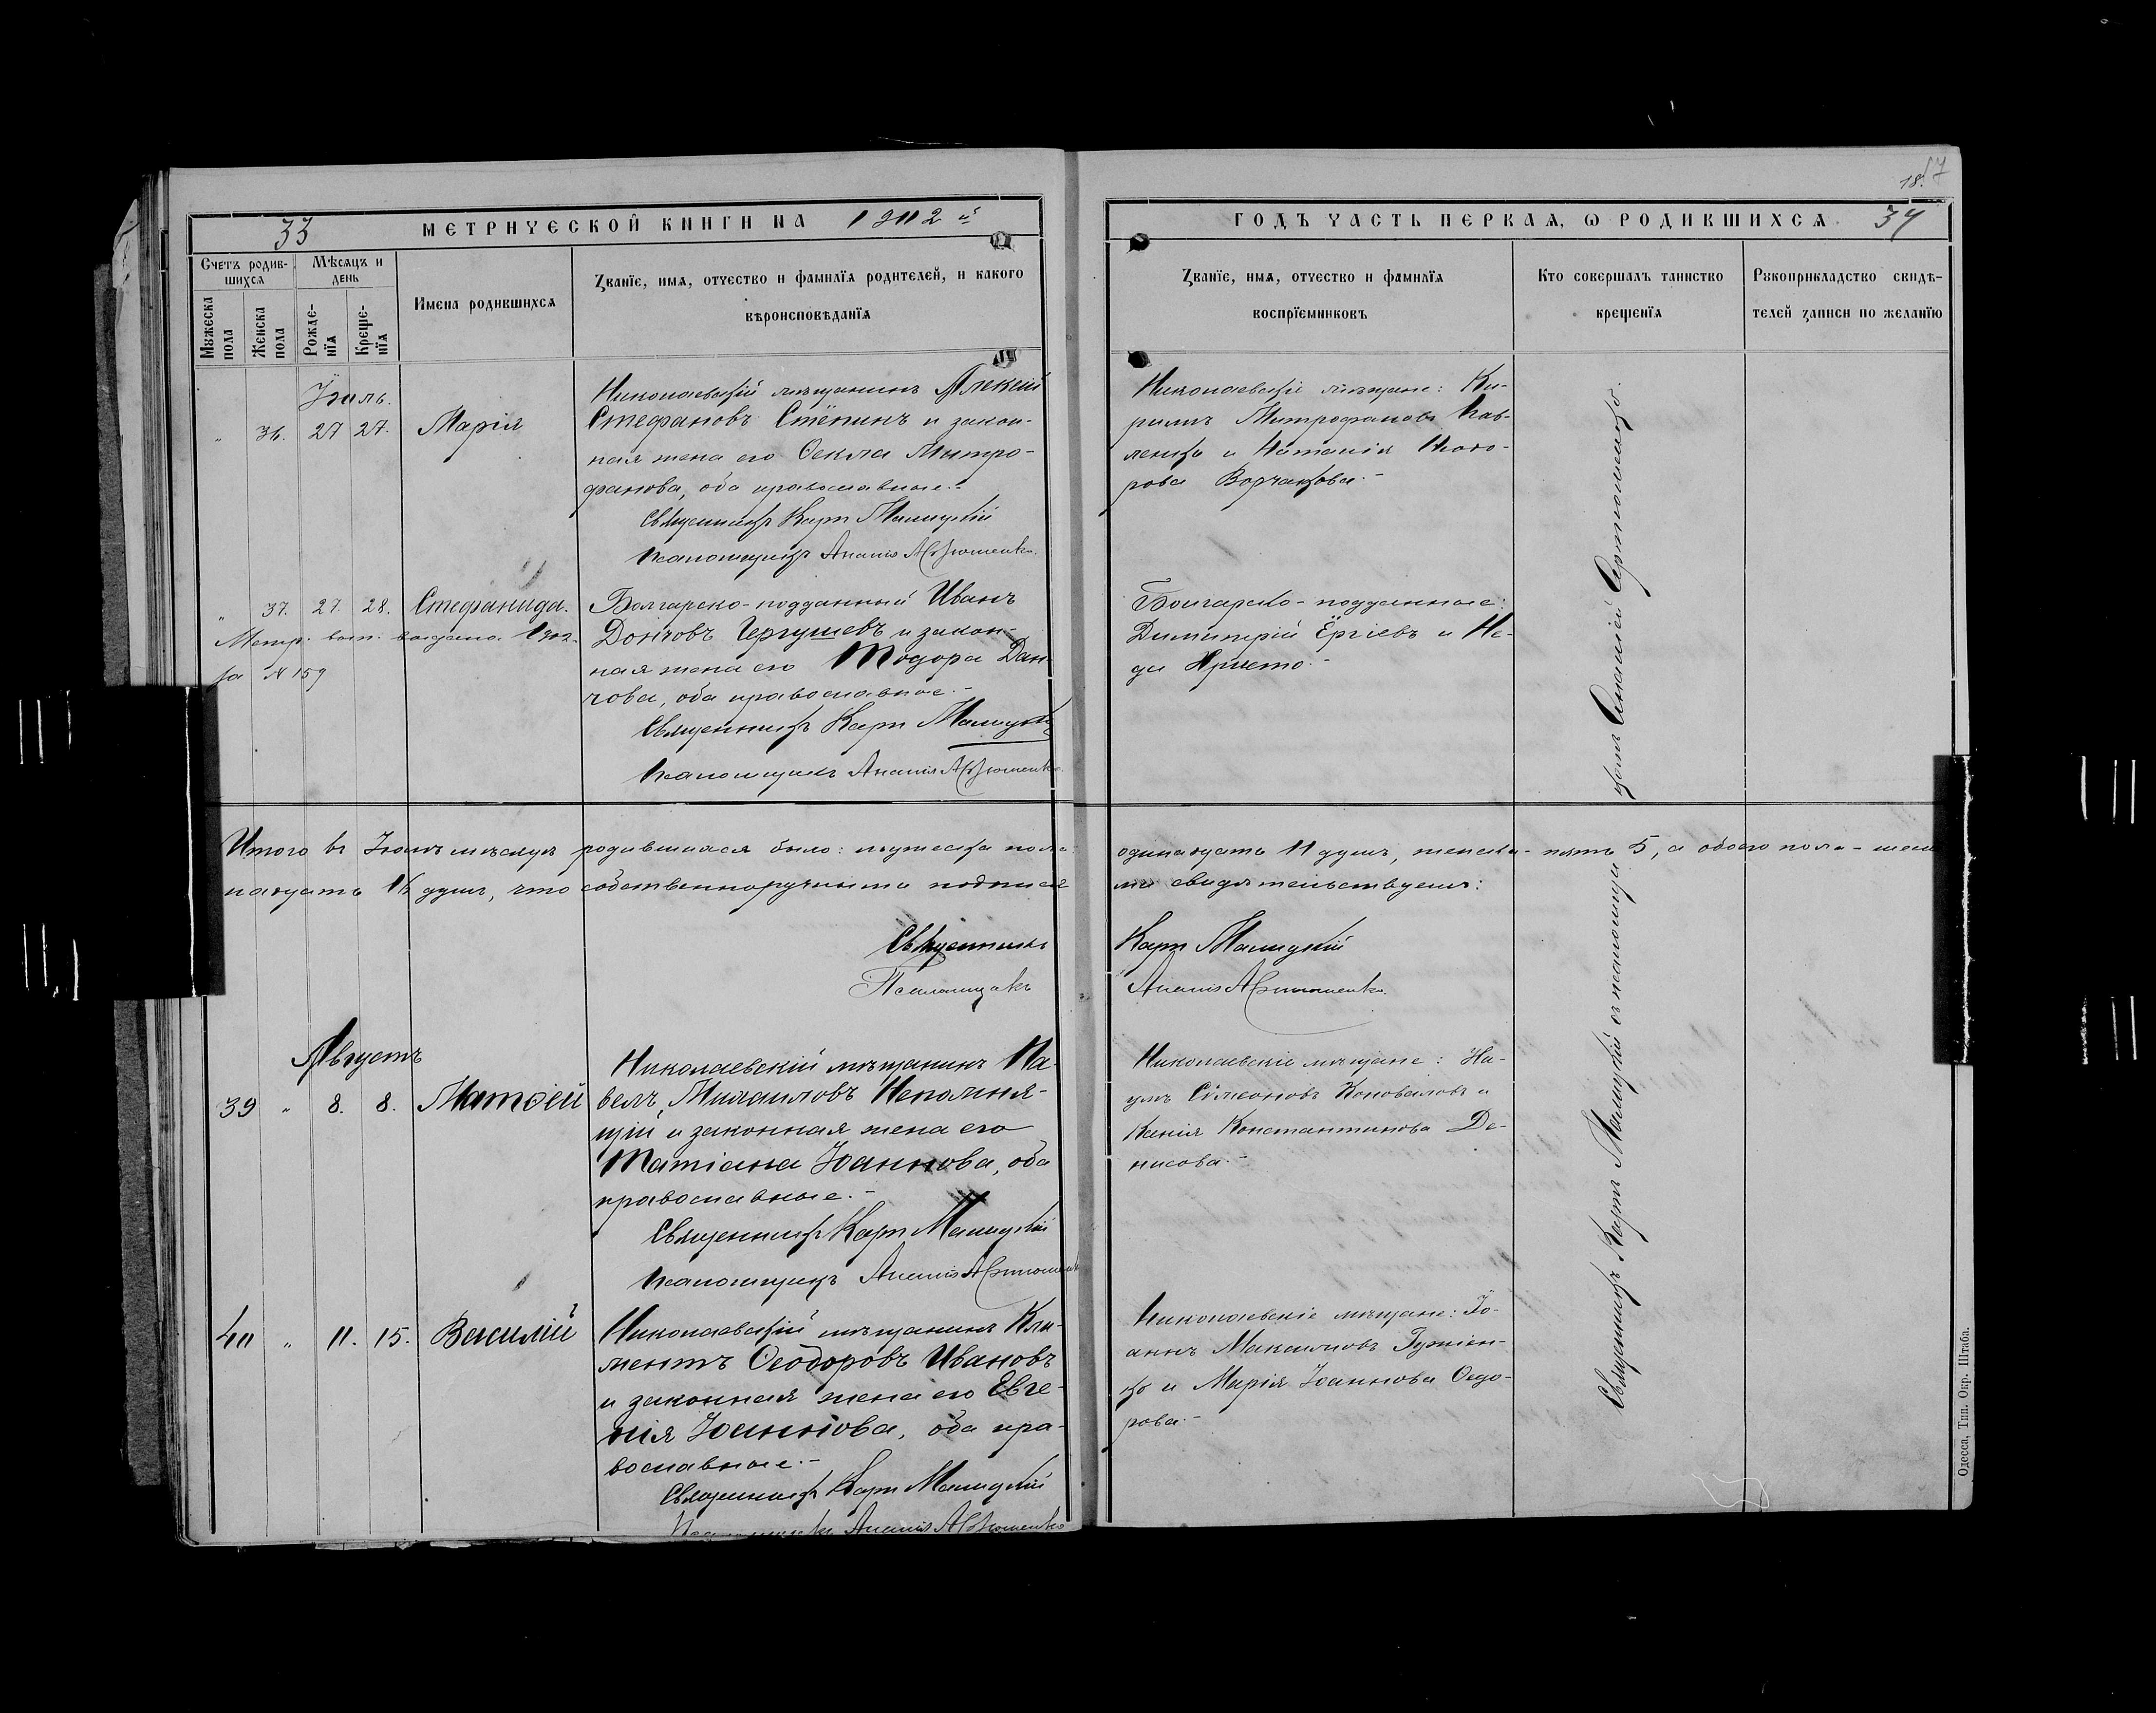 18. 17
33 МЕТРИЧЕСКОЙ КНИГИ НА 1902 й
ГОДЪ ЧАСТЬ ПЕРВАЯ, Ѡ РОДИВШИХСЯ 34
Счетъ родив-
шихся
Мѣсяцъ и
день
Мужеска
пола
Женска
пола
Рожде-
нїя
Креще-
нїя
Имена родившихся
Званїе, имя, отчество и фамилїя родителей, и какого
вѣроисповѣданїя
Званїе, имя, отчество и фамилїя
воспрїемниковъ
Кто совершалъ таинство
крещенїя
Рукоприкладство свидѣ-
телей записи по желанїю
Іюль.
" 36. 27 27. Марія
Николаевскій мѣщанинъ Алексій
Стефановъ Стёпинъ и закон-
ная жена его Ѳекла Митро-
фанова, оба православные.-
Священникъ Карп Малицкій
Псаломщикъ Ананія
Николаевскіе мѣщане: Ки-
рилъ Митрофановъ Пав-
ленко и Наталія
рова
" 37. 27. 28. Стефанида.
Метр. вып. выдана 1902.
за № 159
Болгарско-подданный Иванъ
Дончовъ Чергушевъ и закон-
ная жена его Тодора Дан-
чова, оба православные.-
Священникъ Карп Малицкій
Псаломщикъ Ананія
Болгарско-подданные:
Димитрій Ёргіевъ и Не-
да Христо.-
Итого въ Іюлѣ мѣсяцѣ родившихся было: мужеска пола
одинадцать 11 душъ, женска - пять 5, а обоего пола - шест
надцать 16 душъ, что собственноручными подпися
ми свидѣтельствуемъ:
Священникъ Карп Малицкій
Псаломщикъ Ананія
Августъ
39 " 8. 8. Матѳей
Николаевскій мѣщанинъ Па-
велъ Михаиловъ Непомня-
щій и законная жена его
Татіана Іоаннова, оба
православные.-
Священникъ Карп Малицкій
Псаломщикъ Ананія
Николаевскіе мѣщане: На-
умъ Сѵмеоновъ Коноваловъ и
Ксенія Константинова Де-
нисова.-
40 " 11. 15. Василій
Николаевскій мѣщанинъ Кли-
ментъ Ѳеодоровъ Ивановъ
и законная жена его Евге-
нія Іоаннова, оба пра-
вославные.-
Священникъ Карп Малицкій
Псаломщикъ Ананія
Николаевскіе мѣщане: Іо-
аннъ Максимовъ Гужіен-
ко и Марія Іоаннова Ѳедо-
рова.-
Священникъ Карпъ Малицкій съ псаломщи
комъ Ананіей
Одесса, Тип. Окр. Штаба.